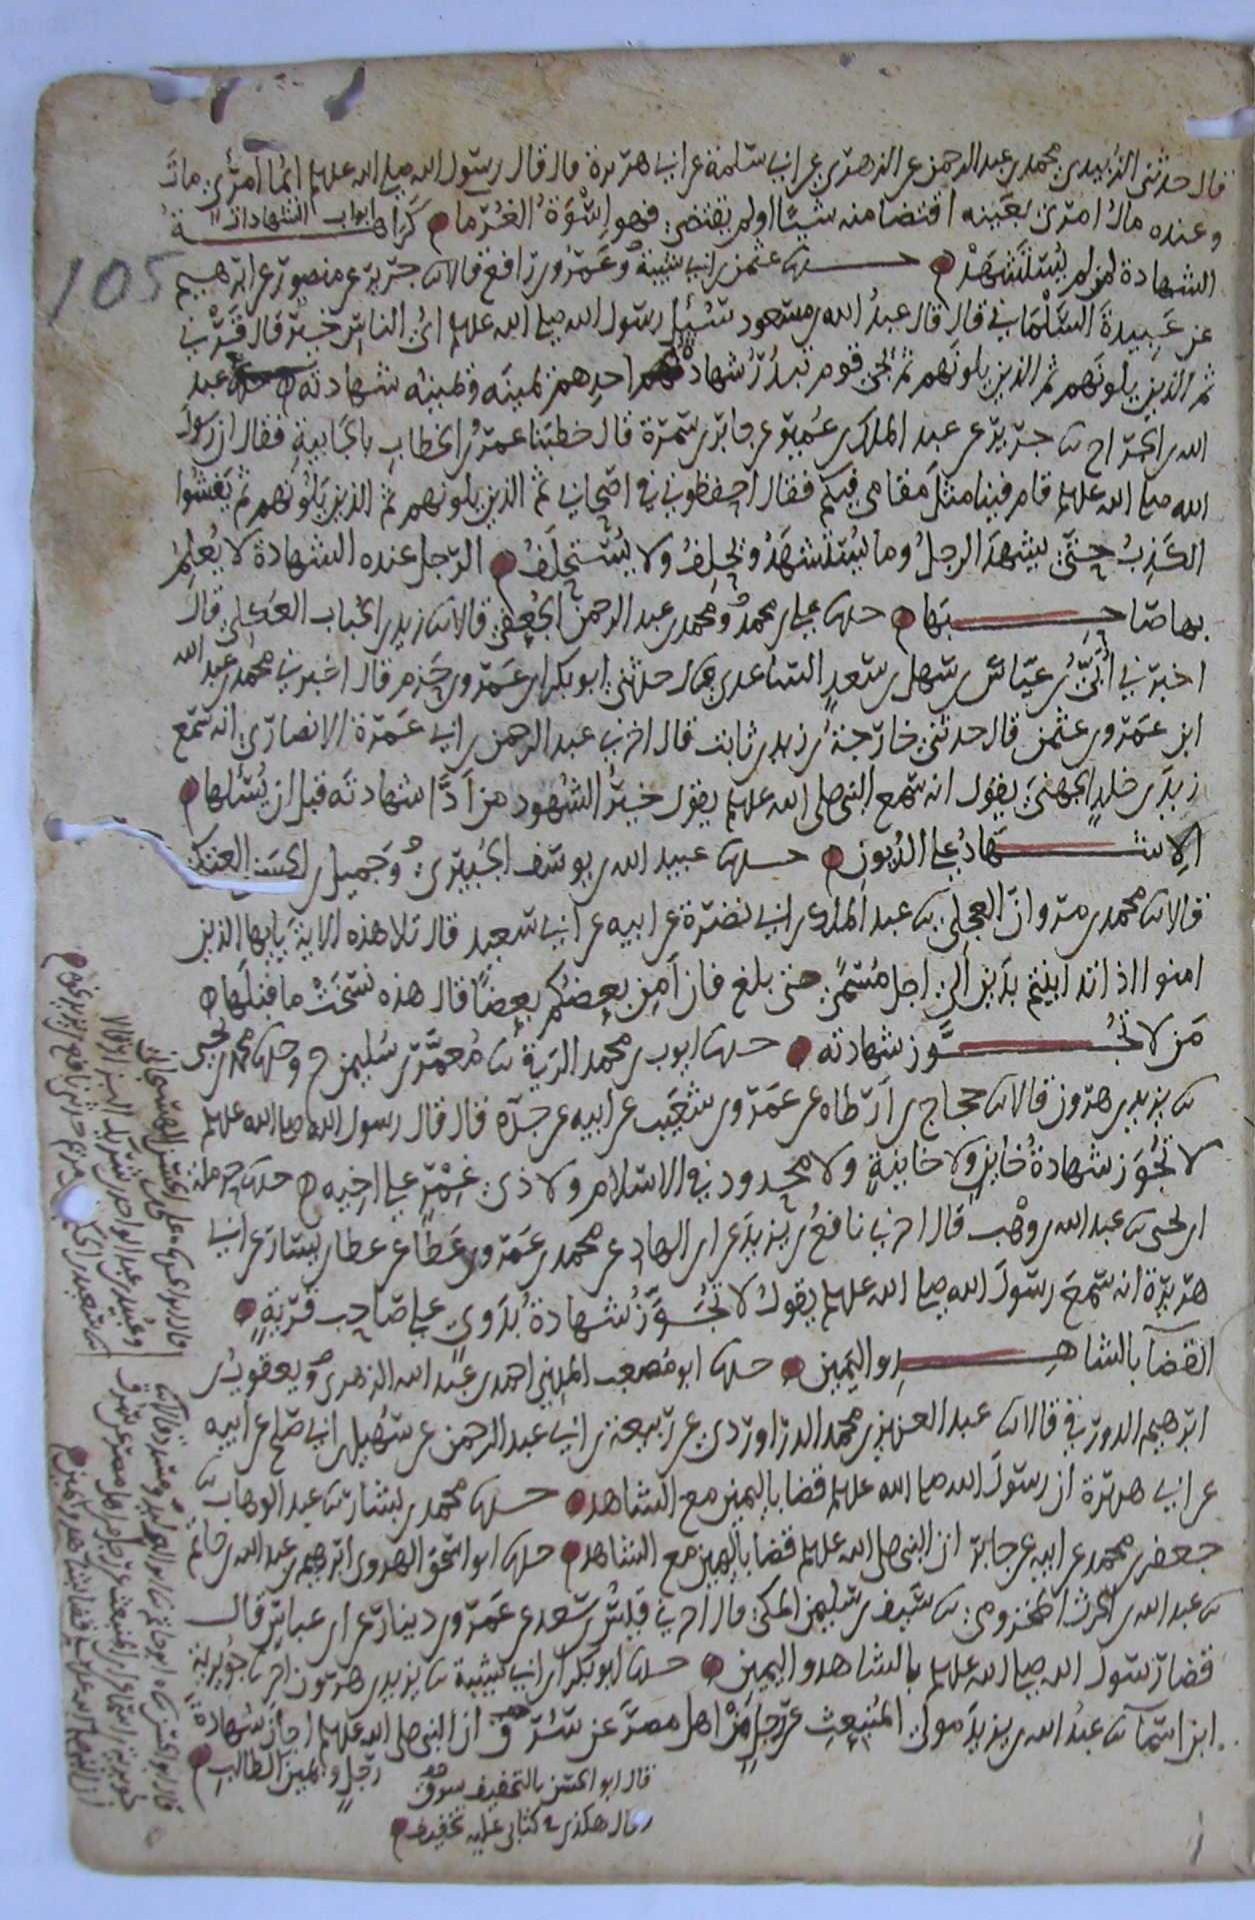 قال حدثني الزبيدي محمد بن عبد الرحمن عن الزهري عن ابي سلمة عن ابي هريرة قال قال رسول الله صلى الله عليه وسلم ايما امرئ مات
وعنده مال امرئ بعينه اقتضا منه شيئا او لم يقتضي فهو اسوة الغرما ابواب الشهادات كراهية
الشهادة لمن لم يستشهد حدثنا عثمن بن ابي شيبة وعمرو بن رافع قالا ثنا جرير عن منصور عن ابرهيم
عن عبيدة السلماني قال قال عبد الله بن مسعود سئل رسول الله صلى الله عليه وسلم اي الناس خير قال قرني
ثم الذين يلونهم ثم الذين يلونهم ثم يجي قوم تبدر شهادة احدهم يمينه ويمينه شهادته حدثنا عبد
الله بن الجراح ثنا جرير عن عبد الملك بن عمير عن جابر بن سمرة قال خطبنا عمر بن الخطاب بالجابية فقال ان رسول
الله صلى الله عليه وسلم قام فينا مثل مقامي فيكم فقال احفظوني في اصحابي ثم الذين يلونهم ثم الذين يلونهم ثم يفشوا
الكذب حتى يشهد الرجل وما يستشهد ويحلف ولا يستحلف الرجل عنده الشهادة لا يعلم
بها صاحبها حدثنا علي بن محمد ومحمد بن عبد الرحمن الجعفي قالا ثنا زيد بن الحباب العكلي قال
اخبرني ابي بن عباس بن سهل بن سعد الساعدي قال حدثني ابو بكر بن عمرو بن حزم قال اخبرني محمد بن عبد الله
ابن عمرو بن عثمن قال حدثني خارجة بن زيد بن ثابت قال اخبرني عبد الرحمن بن ابي عمرة الانصاري انه سمع
زيد بن خلد الجهني يقول انه سمع النبي صلى الله عليه وسلم يقول خير الشهود من ادا شهادته قبل ان يسئلها
الاشهاد على الديون حدثنا عبيد الله بن يوسف الجبيري وجميل بن الحسن العتكي
قالا ثنا محمد بن مروان العجلي ثنا عبد الملك بن ابي نضرة عن ابيه عن ابي سعيد قال تلا هذه الاية يايها الذين
امنوا اذا تداينتم بدين الى اجل مسمى حتى بلغ فان امن بعضكم بعضا قال هذه نسخت ما قبلها
من لا تجوز شهادته حدثنا ايوب بن محمد الرقي ثنا معمر بن سليمن ح وحدثنا محمد بن يحيى
ثنا يزيد بن هرون قالا ثنا حجاج بن ارطاه عن عمرو بن شعيب عن ابيه عن جده قال قال رسول الله صلى الله عليه وسلم
لا تجوز شهادة خاين ولا خاينة ولا محدود في الاسلام ولا ذي غمر على اخيه حدثنا حرملة
ابن يحيى ثنا عبد الله بن وهب قال اخبرني نافع بن يزيد عن ابن الهاد عن محمد بن عمرو بن عطا عن عطا بن يسار عن ابي
هريرة انه سمع رسول الله صلى الله عليه وسلم يقول لا تجوز شهادة بدوي على صاحب قرية
القضا بالشاهد واليمين حدثنا ابو مصعب المديني احمد بن عبد الله الزهري ويعقوب بن
ابرهيم الدورقي قالا ثنا عبد العزيز بن محمد الدراوردي عن ربيعة بن ابي عبد الرحمن عن سهيل بن ابي صلح عن ابيه
عن ابي هريرة ان رسول الله صلى الله عليه وسلم قضا باليمين مع الشاهد حدثنا محمد بن بشار ثنا عبد الوهاب ثنا
جعفر بن محمد عن ابيه عن جابر ان النبي صلى الله عليه وسلم قضا باليمين مع الشاهد حدثنا ابو اسحق الهروي ابرهيم بن عبد الله بن حاتم
ثنا عبد الله بن الحرث المخزومي ثنا سيف بن سليمن المكي قال اخبرني قيس بن سعد عن عمرو بن دينار عن ابن عباس قال
قضا رسول الله صلى الله عليه وسلم بالشاهد واليمين حدثنا ابو بكر بن ابي شيبة ثنا يزيد بن هرون اخبرنا جويرية
ابن اسما ثنا عبد الله بن يزيد مولى المنبعث عن رجل من اهل مصر عن سرق ان النبي صلى الله عليه وسلم اجاز شهادة
رجل ويمين الطالب
قال ابو الحسن بالتخفيف سرق
وقال هكذى في كتابي علي تخفيف
105